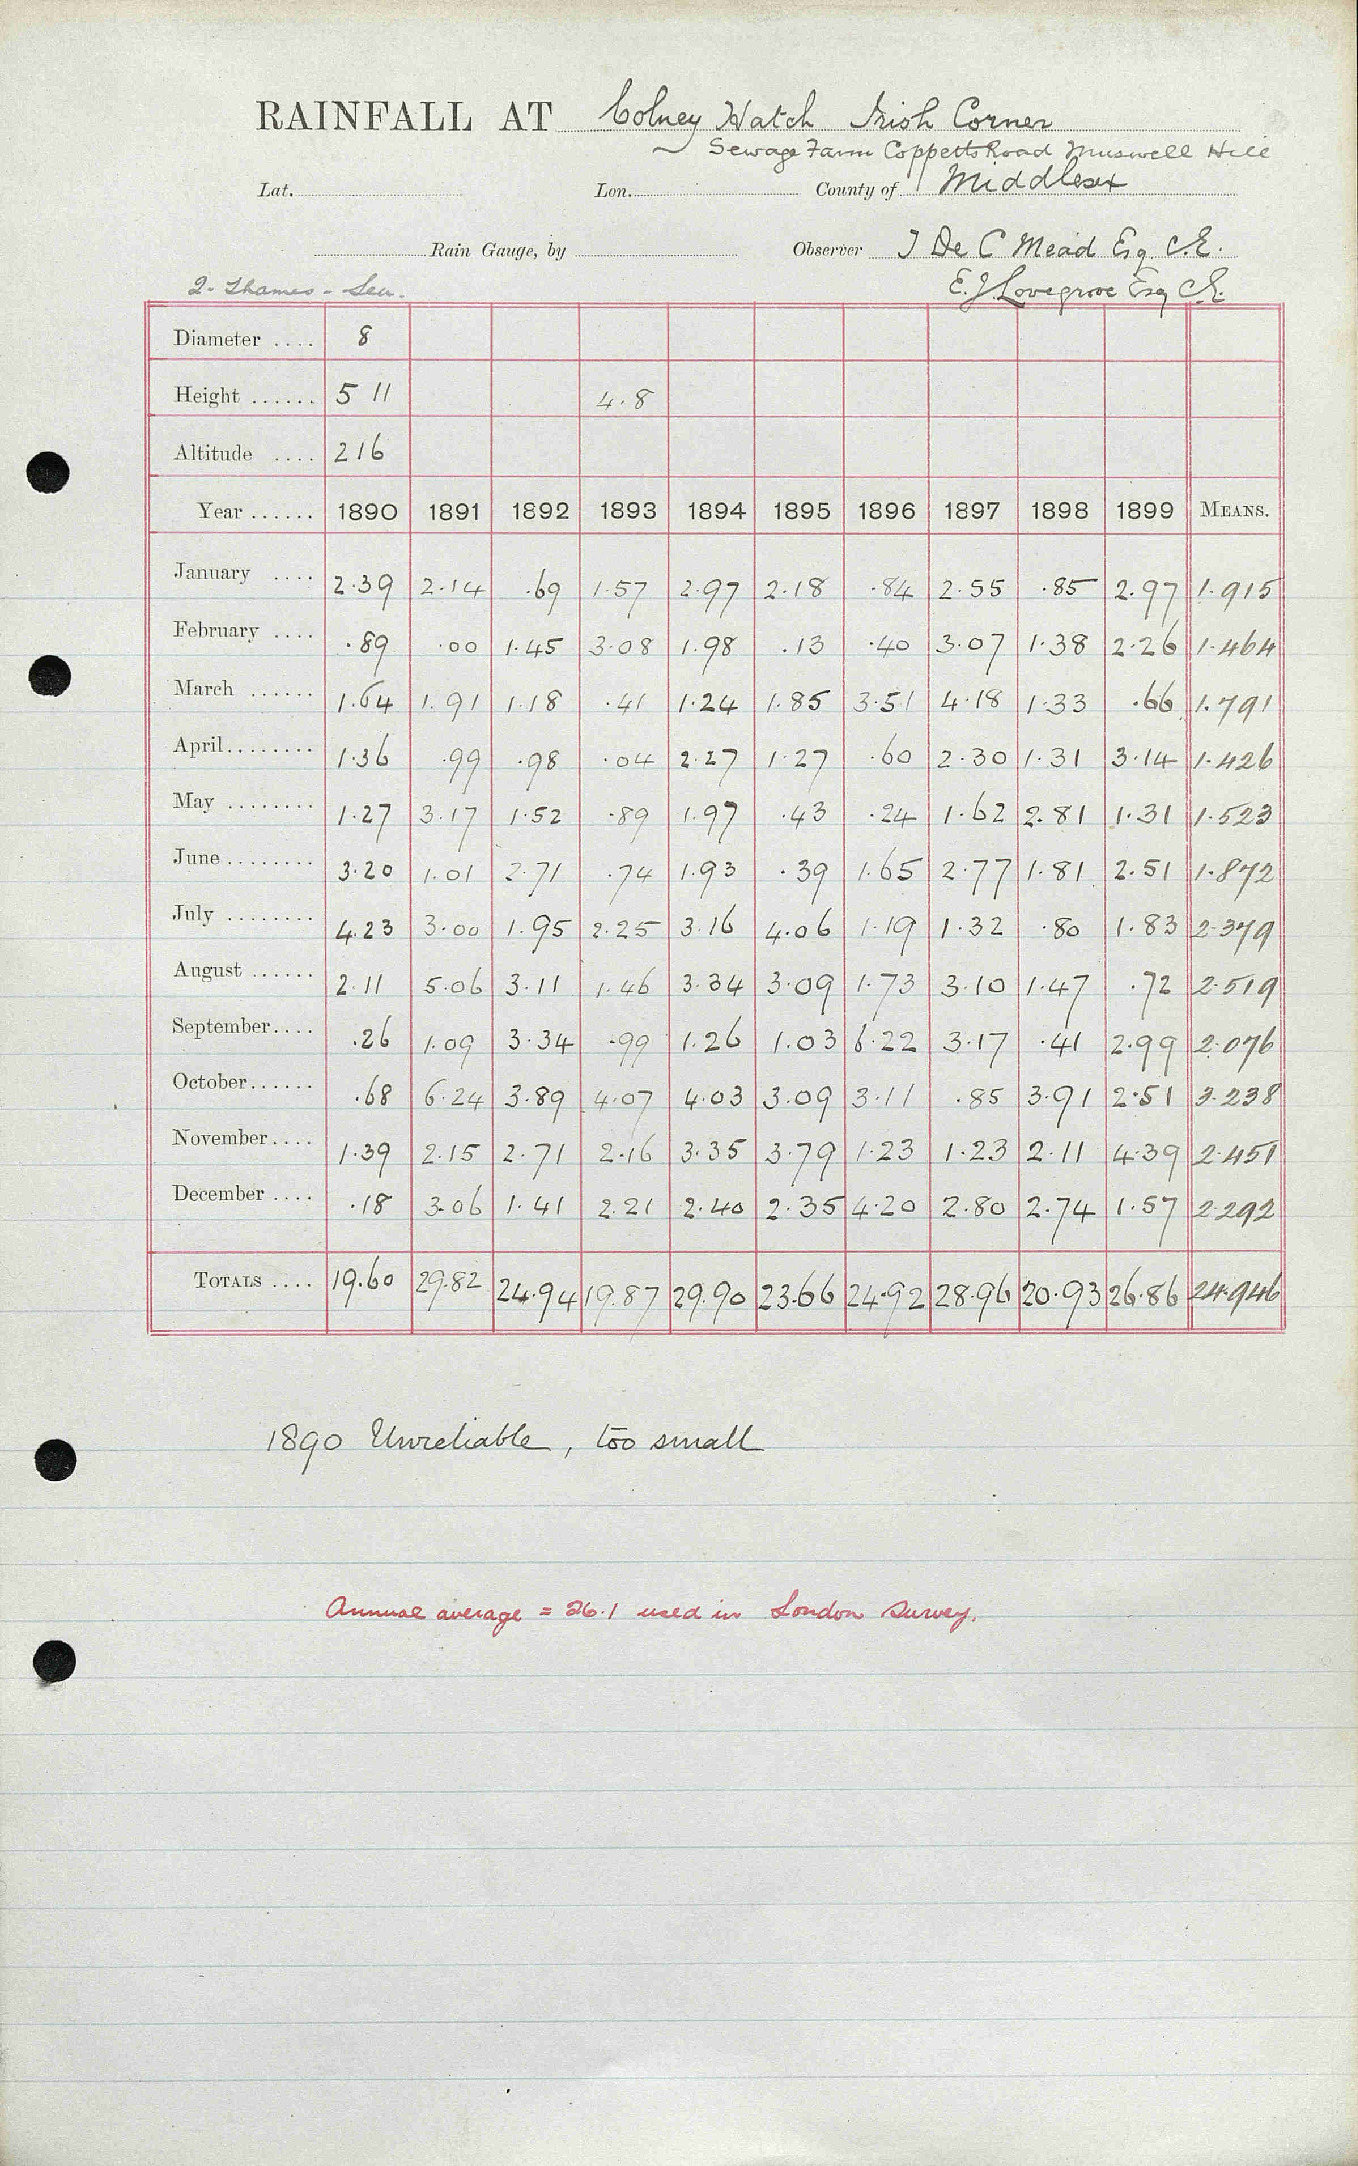 RAINFALL AT Colney Hatch Irish Corner
Sewage Farm Coppetts Road Muswell Hill
Lat. Lon. County of Middlesex
Rain Gauge, by Observer T De C Mead Esq. C.E.
2. Thames - Sea. E. J Lovegrove Esq C.E.
Diameter .... 8
Height ...... 5 11 4.8
Altitude .... 216
Year ...... 1890 1891 1892 1893 1894 1895 1896 1897 1898 1899 MEANS.
January .... 2.39 2.14 .69 1.57 2.97 2.18 .84 2.55 .85 2.97 1.915
February .... .89 .00 1.45 3.08 1.98 .13 .40 3.07 1.38 2.26 1.464
March ...... 1.64 1.91 1.18 .41 1.24 1.85 3.51 4.18 1.33 .66 1.791
April........ 1.36 .99 .98 .04 2.27 1.27 .60 2.30 1.31 3.14 1.426
May ........ 1.27 3.17 1.52 .89 1.97 .43 .24 1.62 2.81 1.31 1.523
June ........ 3.20 1.01 2.71 .74 1.93 .39 1.65 2.77 1.81 2.51 1.872
July ........ 4.23 3.00 1.95 2.25 3.16 4.06 1.19 1.32 .80 1.83 2.379
August ...... 2.11 5.06 3.11 1.46 3.34 3.09 1.73 3.10 1.47 .72 2.519
September.... .26 1.09 3.34 .99 1.26 1.03 6.22 3.17 .41 2.99 2.076
October...... .68 6.24 3.89 4.07 4.03 3.09 3.11 .85 3.91 2.51 3.238
November.... 1.39 2.15 2.71 2.16 3.35 3.79 1.23 1.23 2.11 4.39 2.451
December .... .18 3.06 1.41 2.21 2.40 2.35 4.20 2.80 2.74 1.57 2.292
TOTALS .... 19.60 29.82 24.94 19.87 29.90 23.66 24.92 28.96 20.93 26.86 24.946
1890 Unreliable, too small
Annual average = 26.1 used in London Survey.